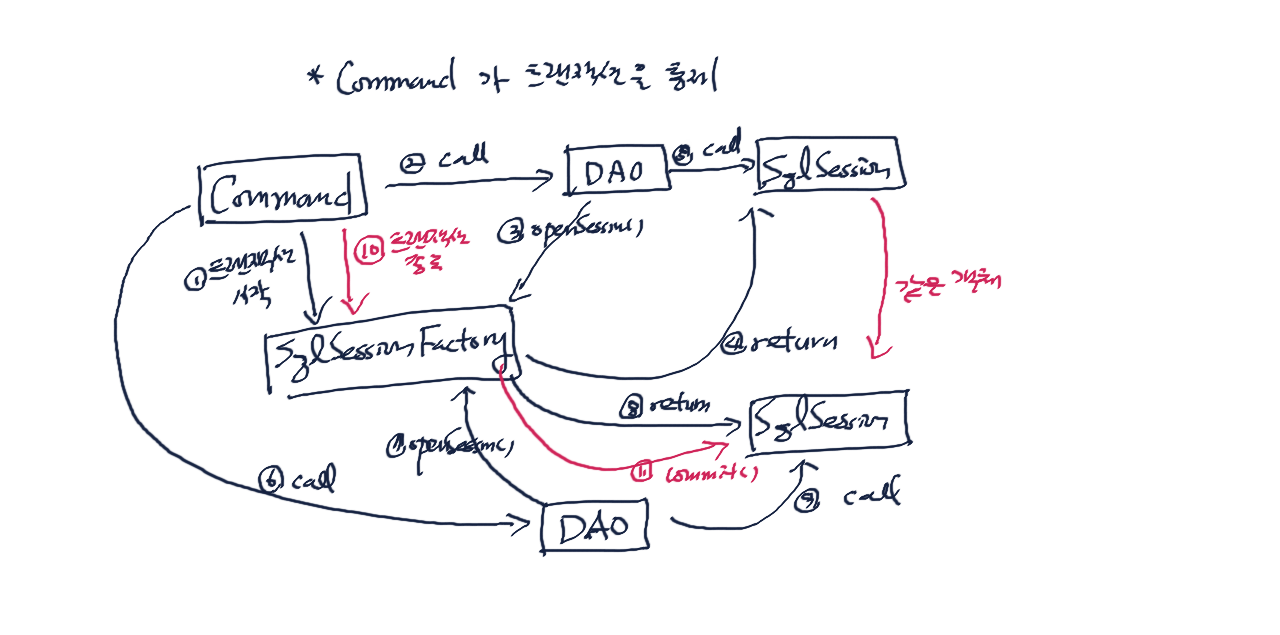 * Command 가 트랜잭션을 통제
Command
② call
DAO
⑤ call
SqlSession
③ openSession()
① 트랜잭션
시작
⑩ 트랜잭션
종료
같은 객체
SqlSessionFactory
④ return
⑧ return
SqlSession
⑦ openSession()
⑪ commit()
⑥ call
DAO
⑨ call